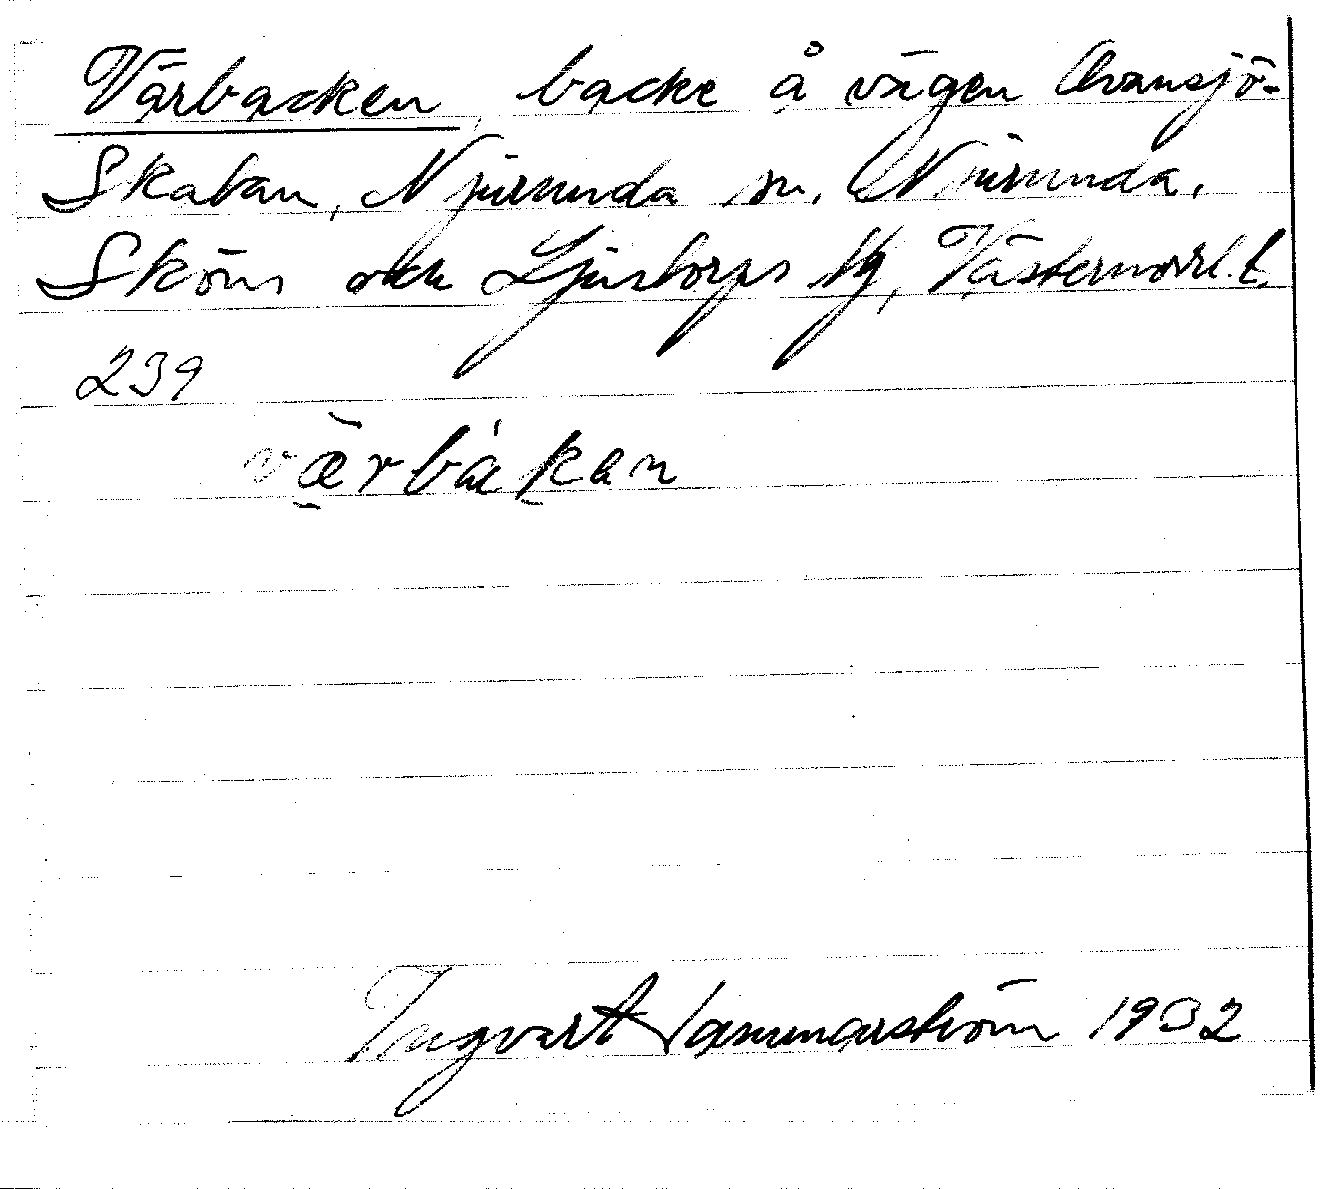 Vårbacken, backe å vägen Ovansjö-
Skatan, Njurunda sn, Njurunda,
Sköns och Ljustorps tlg, Västernorrl. l.
239
værbàkan
Ingvart Hammarström 1932